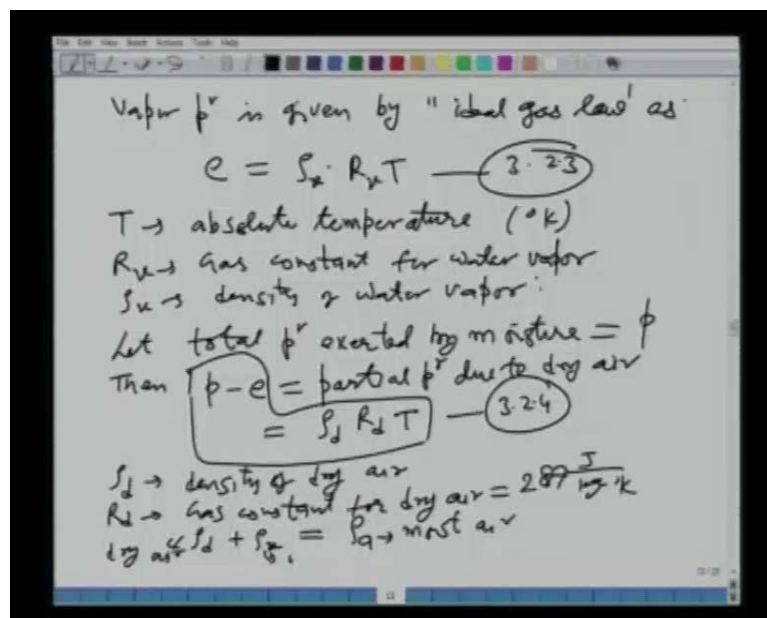 Vapor pʳ is given by "ideal gas law" as
e = ρᵥ. Rᵥ T — 3.2.3
T → absolute temperature (°K)
Rᵥ → Gas constant for water vapor
ρᵥ → density of water vapor.
Let total pʳ exerted by moisture = p
Then p-e = partial pʳ due to dry air
= ρd Rd T — 3.2.4
ρd → density of dry air
Rd → Gas constant for dry air = 287 J/kg °K
dry air ρd + ρᵥ = ρa → moist air